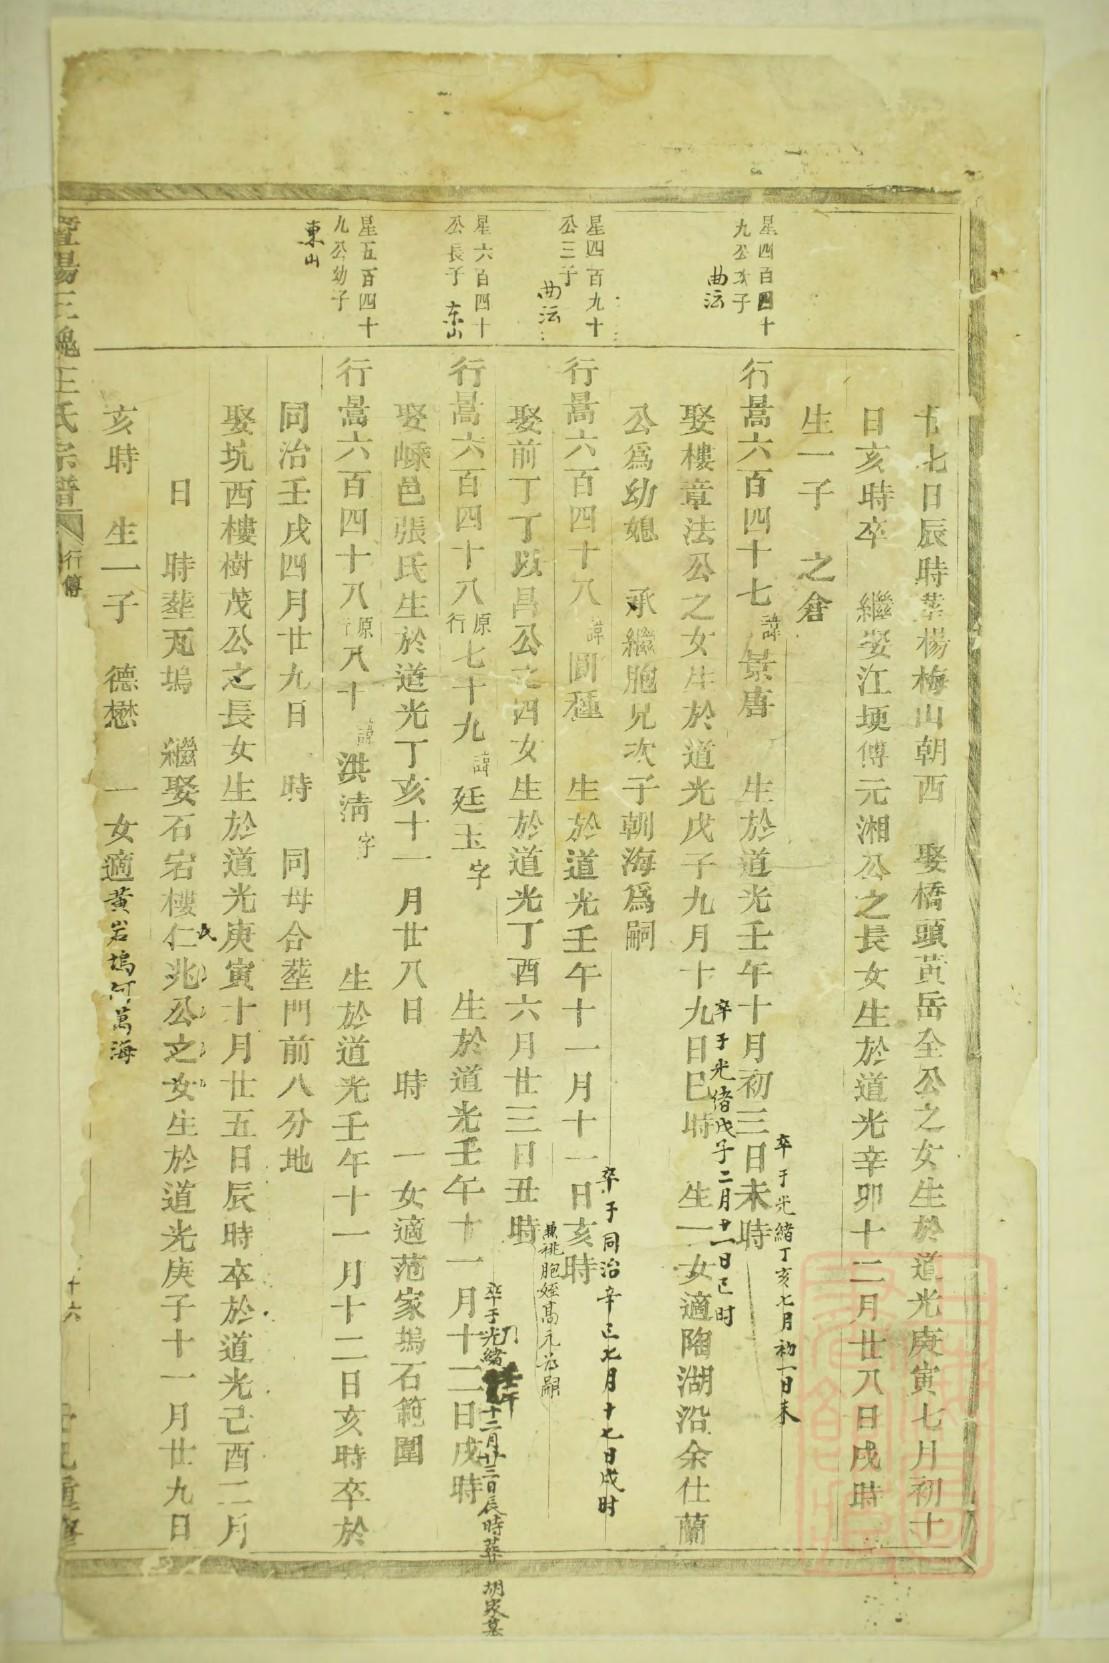 廿七日辰時塟楊梅山朝西　娶橋頭黃岳全公之女生於道光庚寅七月初十
日亥時卒　繼娶江埂傅元湘公之長女生於道光辛卯十二月廿八日戌時
生一子　之倉
星四百四十
九公次子
曲沄
行暠六百四十七諱景唐　生於道光壬午十月初三日未時
卒于光緒丁亥七月初一日未
娶樓章法公之女生於道光戊子九月十九日巳時　生一女適陶湖沿余仕蘭
卒于光緒戊子二月廿一日巳时
公為幼媳　承繼胞兄次子朝海為嗣
星四百九十
公三子
曲沄
行暠六百四十八諱圓種　生於道光壬午十一月十一日亥時
卒于同治辛巳七月十七日戌时
娶前丁丁以昌公之四女生於道光丁酉六月廿三日丑時
兼祧胞姪萬元為嗣
星六百四十
公長子
東山
行暠六百四十八原行七十九諱廷玉字　生於道光壬午十一月十二日戌時
卒于光緒壬午十二月廿三日辰時葬
娶嵊邑張氏生於道光丁亥十一月廿八日　時　一女適范家塢石範圍
星五百四十
九公幼子
東山
行暠六百四十八原八十諱洪淸字　生於道光壬午十一月十二日亥時卒於
同治壬戌四月廿九日　時　同母合塟門前八分地
娶坑西樓樹茂公之長女生於道光庚寅十月廿五日辰時卒於道光己酉二月
日　時塟瓦塢　繼娶石宕樓仁兆公之女生於道光庚子十一月廿九日
氏
亥時　生一子　德懋　一女適黃岩塢何萬海
暨陽王氏宗譜
行傳
十六
重修